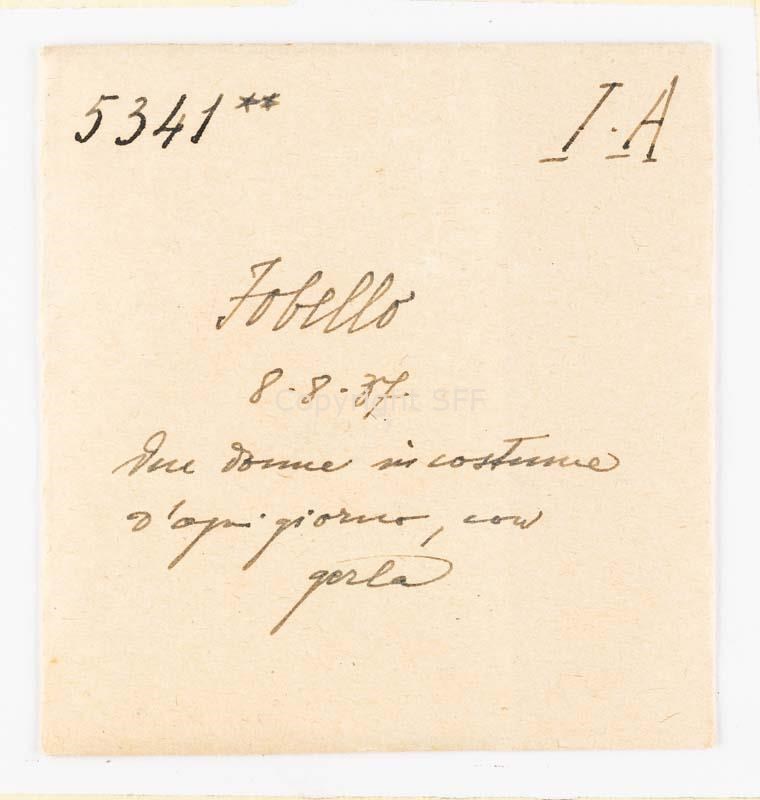 5341** I.A
Fobello
8.8.37.
Due donne in costume
d'ogni giorno, con
gerla
Copyright SFF